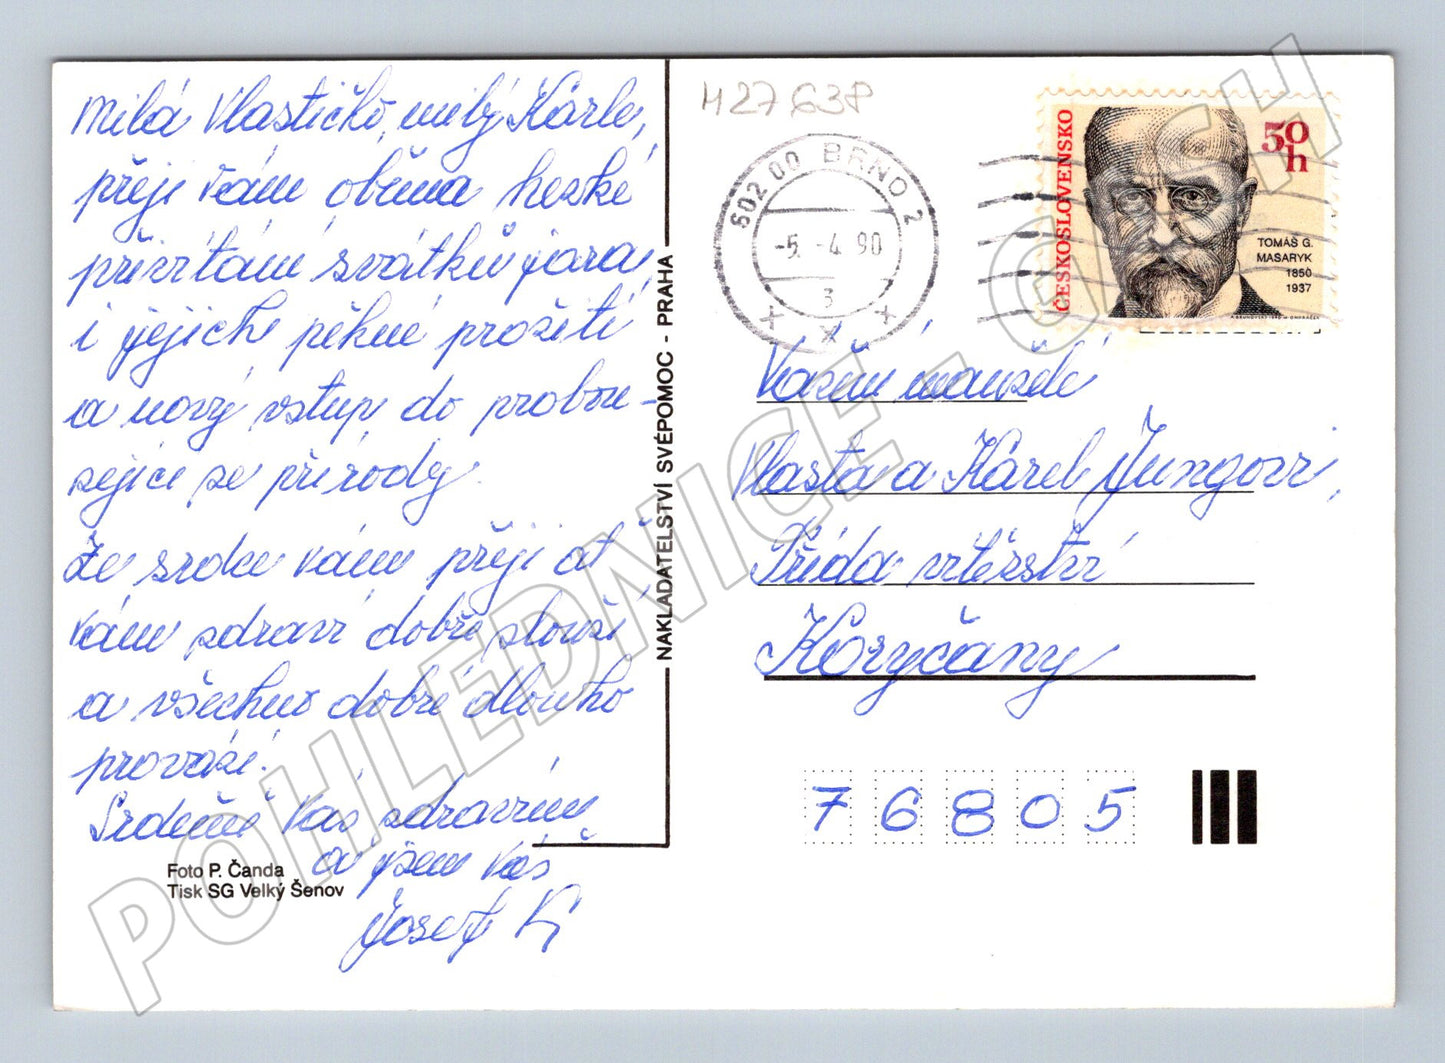 Milá Vlastičko, milý Karle,
přeji vám oběma hezké
přivítání svátků jara,
i jejich pěkné prožití
a nový vstup do probou-
zející se přírody.
Ze srdce vám přeji ať
vám zdraví dobře slouží
a všechno dobré dlouho
provází.
Srdečně Vás zdravím
a jsem Váš
Josef K
Foto P. Čanda
Tisk SG Velký Šenov
NAKLADATELSTVÍ SVÉPOMOC - PRAHA
602 00 BRNO 2
-5.-4.90
3
x x x
ČESKOSLOVENSKO
50
h
TOMÁŠ G.
MASARYK
1850
1937
Vážení manželé
Vlasta a Karel Jungovi,
Třída vítězství
Koryčany
76805
POHLEDNICE - O.S.H